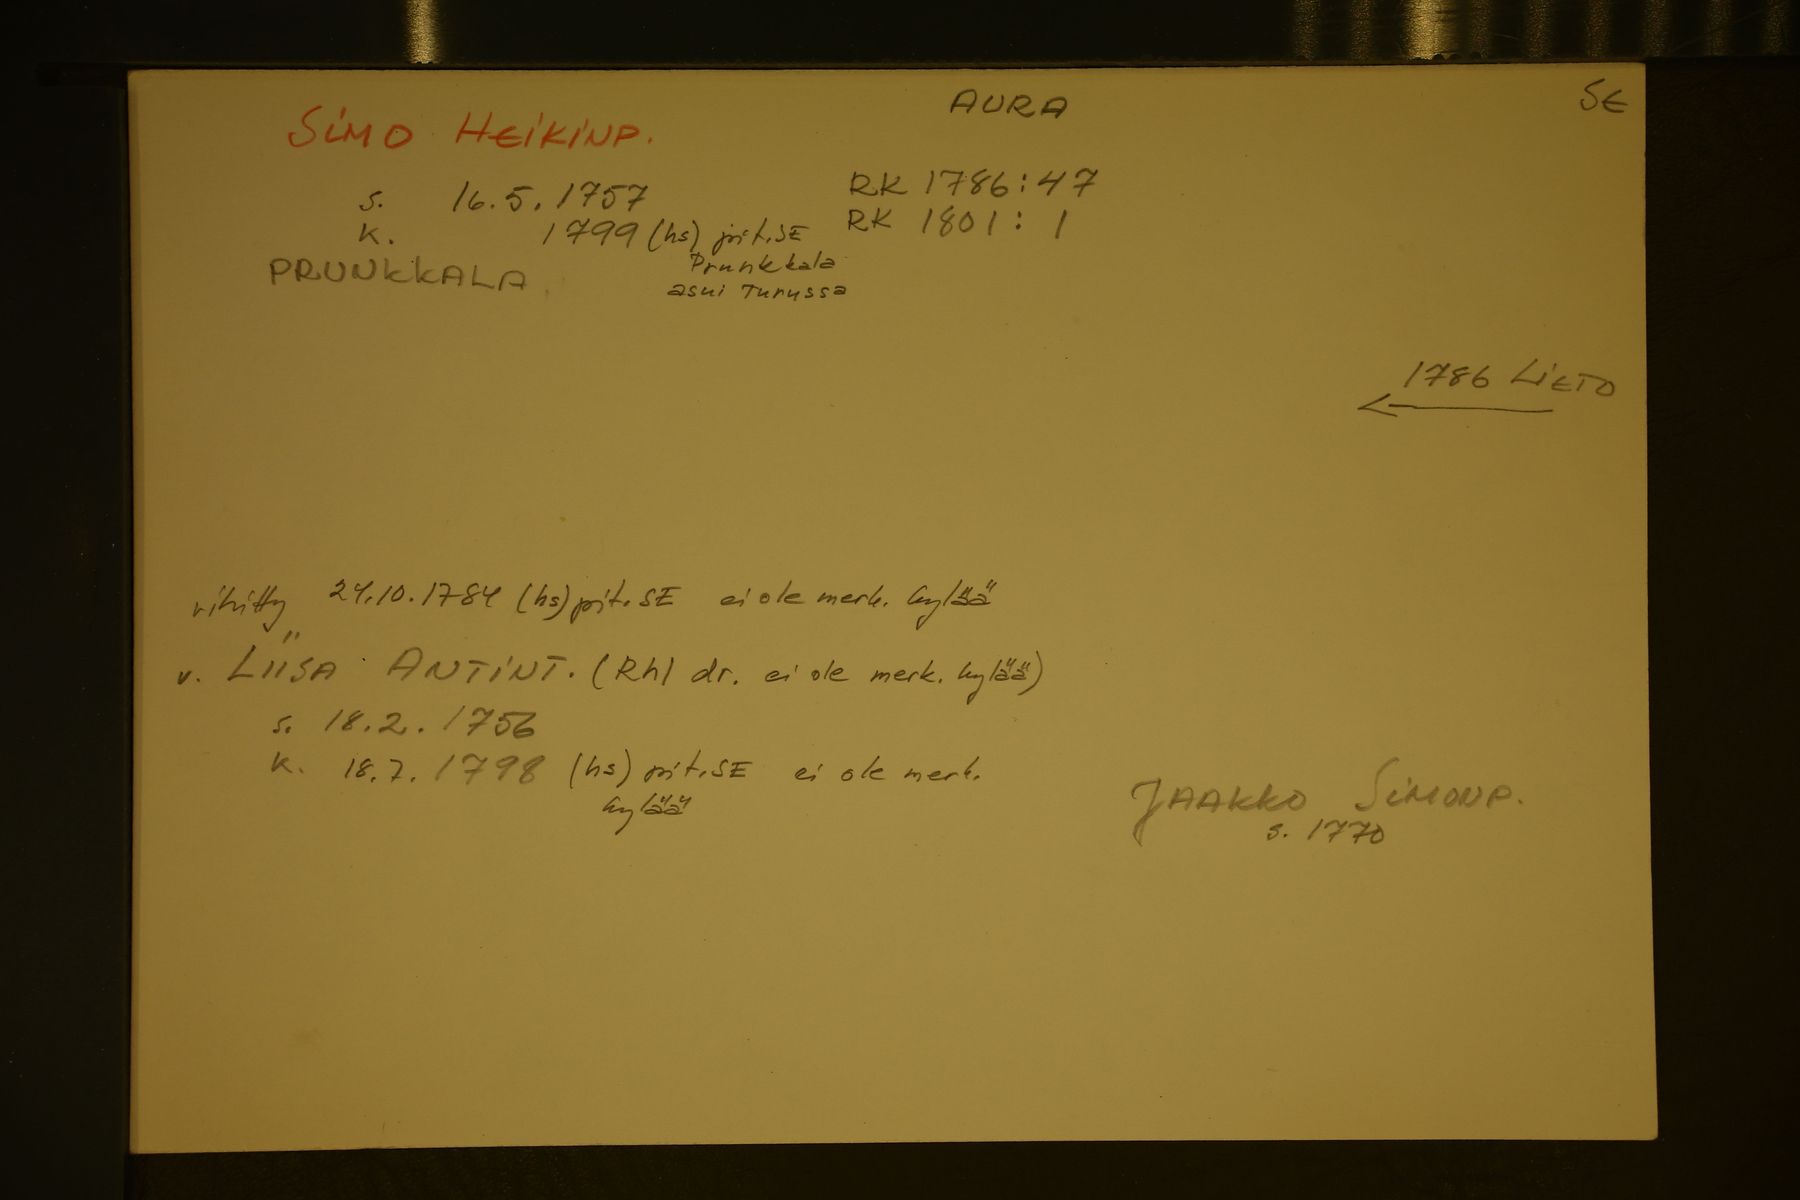 AURA
SE
SIMO HEIKINP.
s. 16.5.1757
RK 1786:47
k. 1799 (hs) pit.SE
RK 1801: 1
Prunkkala
PRUNKKALA
asui Turussa
1786 LIETO
vihitty 24.10.1784 (hs) pit.SE ei ole merk. kylää
v. LIISA ANTINT. (Rhl dr. ei ole merk. kylää)
s. 18.2.1756
k. 18.7.1798 (hs) pit.SE ei ole merk.
kylää
JAAKKO SIMONP.
s. 1770